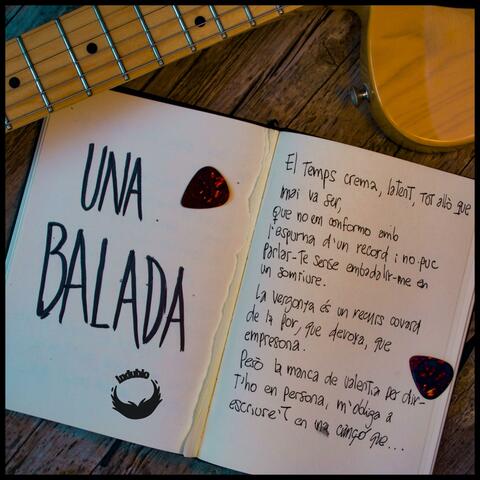 UNA
BALADA
Indubio
El Temps crema, latent, tot allò que
mai va ser,
que no em conformo amb
l'espurna d'un record i no puc
parlar-Te sense embadalir-me en
un somriure.
La vergonya és un recurs covard
de la por, que devora, que
empresona.
Però la manca de valentia per dir-
T'ho en persona, m'obliga a
escriure'T en una cançó que...